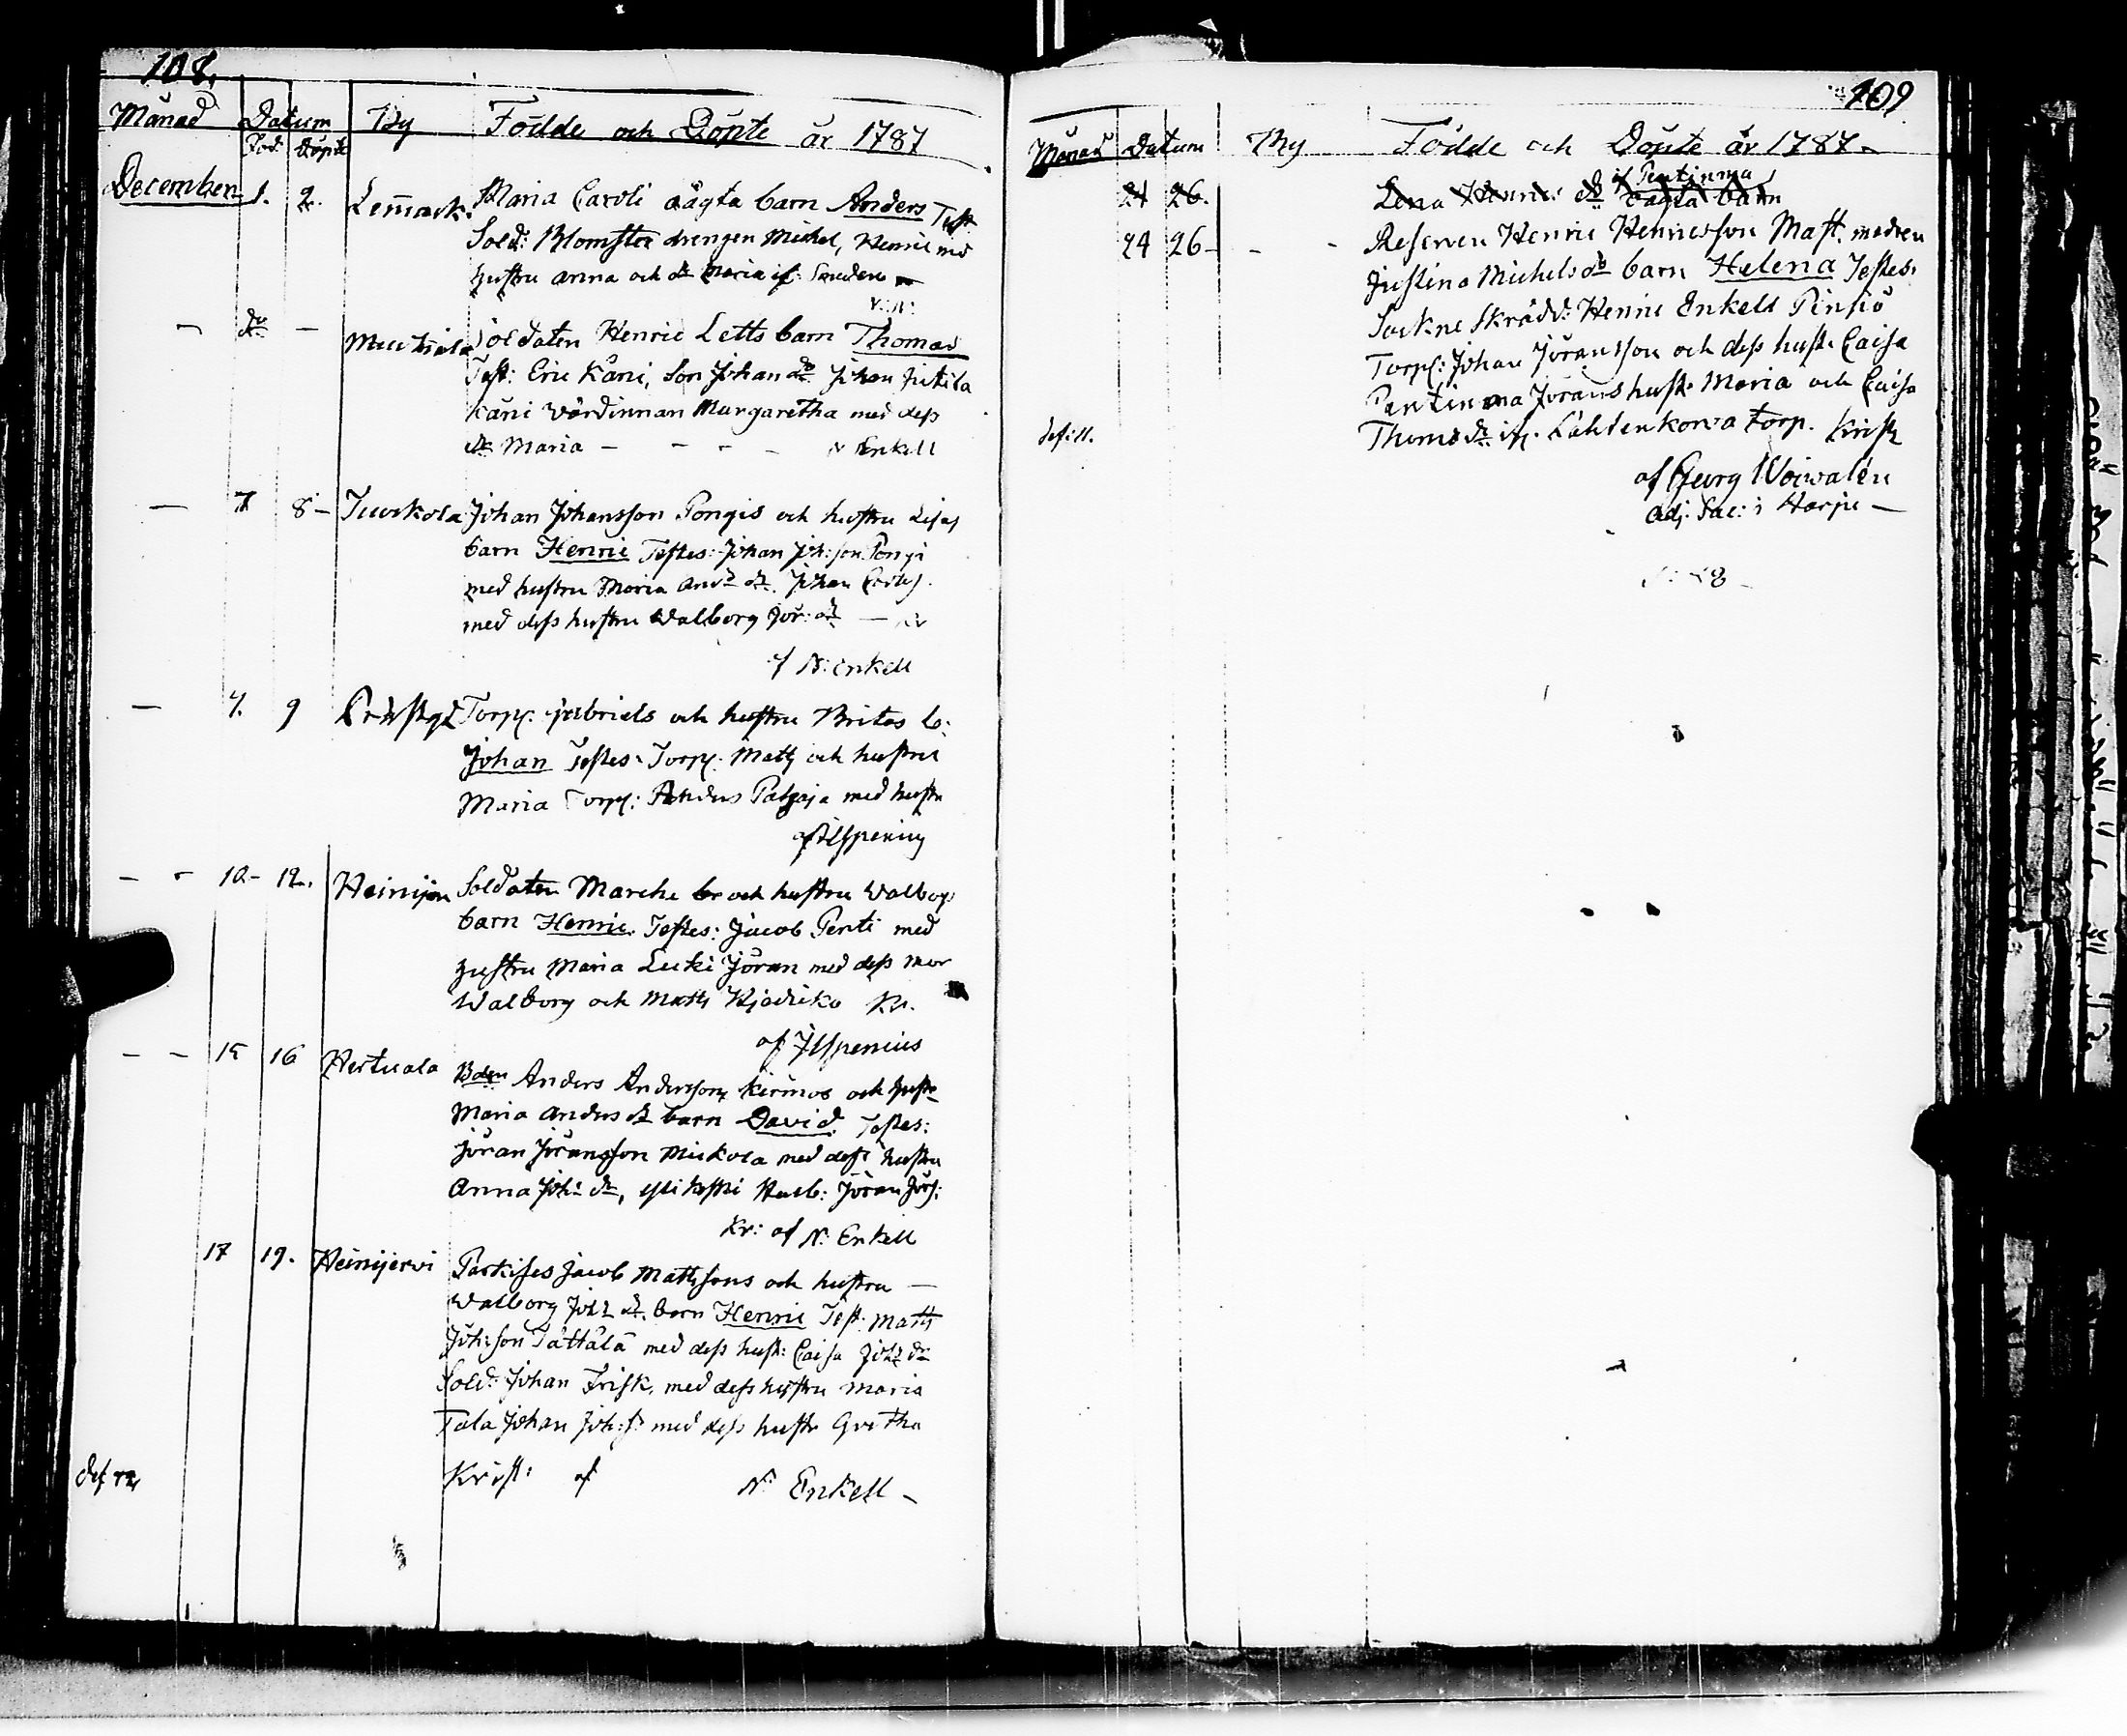 108.
Månad Datum By Födde och Döpte år 1787
Föd: döpte
December 1. 2. Lemack. Maria Caroli oägta barn Anders Test
Sold: Blomster drengen Michel, Henric med
hustru Anna och dr Maria if: Smeden
dr Muckiala Soldaten Henric Letts barn Thomas
Test: Eric Käni, Son Johan do Johan Jutila
Käni Värdinnan Margaretha med dess
dr Maria - - - - N Enkell
7 8 - Tuurkola Johan Johansson Pongis och hustru Lisas
barn Henric Testes: Johan Joh:son Pongi
med hustru Maria And: dr. Johan
med dess hustru Walborg Jör: dr
af N: Enkell
7. 9 Torp: Gabriels och hustru Britas b:
Johan Testes: Torp: Matts och hustru
Maria Torp: Anders Patzaja med hustru
af
10 - 12. Heinijen Soldaten Marche br och hustru Walborg
barn Henric. Testes: Jacob Penti med
hustru Maria Lucki Jöran med dess mor
Walborg och Matts Kr.
af
15 16 Hertuala Bden Anders Andersson Kirmos och hust
Maria Anders dr barn David. Testes:
Jöran Jöransson Mickola med dess hustru
Anna Joh: dr, Husb: Jöran Jörs:
Kr: af N: Enkell
17 19. Heinijervi Parkises Jacob Mattssons och hustru —
Walborg Joh: dr. barn Henric Test: Matts
Joh:son Tättälä med dess hust: Caisa Joh: dr
Sold: Johan Frisk, med dess hustru Maria
Tala Johan Joh: s: med dess hustr Gretha
Krist: af N: Enkell -
109
Månad Datum By Födde och Döpte år 1787.
if Pentinma
24 26. Lena Henrics dr oägta barn
24 26 - - - Reserven Henric Henricsson Mast. med
Justina Michels dr barn Helena Testes.
Sockne Skrädd: Henric Enkell Pinsiö
Torp: Johan Jöransson och dess hust: Caisa
Pentinma Jörans hust: Maria och Caisa
Thoms dr if. Lähtenkorva torp. Krist
af Georg Woivalén
Adj. Sac: i Harju —